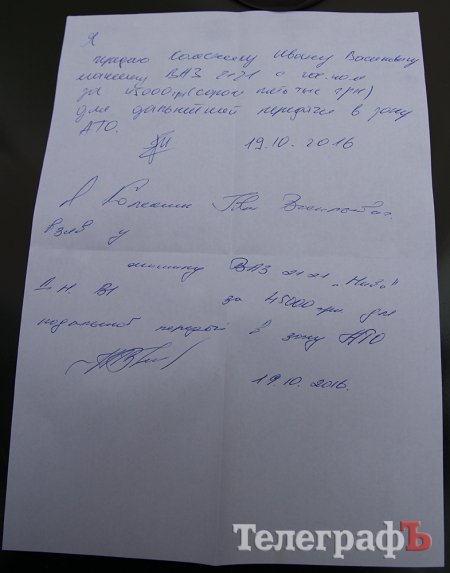 Я
передаю Колеснику Ивану Васильевичу
машину ВАЗ 2121 с гос. ном
за 45000 грн (сорок пять тыс грн)
для дальнейшей передачи в зону
АТО.
19.10.2016
Я Колесник Іван
взяв у
машину ВАЗ 2121 "Нива"
Д.Н. ВІ за 45000 грн для
подальшої передачі в зону АТО
19.10.2016.
ТелеграфЪ